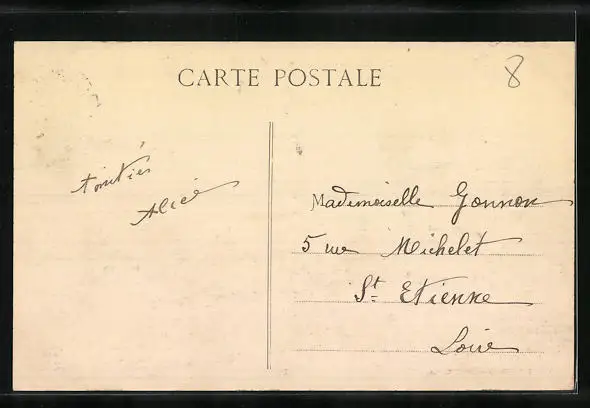 CARTE POSTALE
8
Amitiés
Alice
Mademoiselle Gonnon
5 rue Michelet
St Etienne
Loire